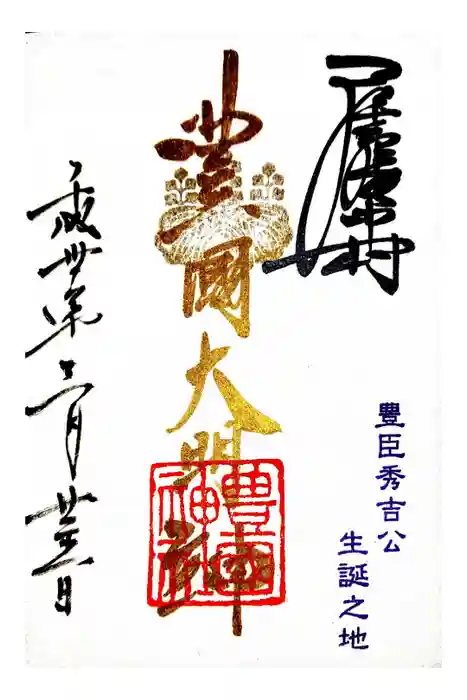 中村
豊國大明神
豊國神社
豊臣秀吉公
生誕之地
平成卅年二月廿三日